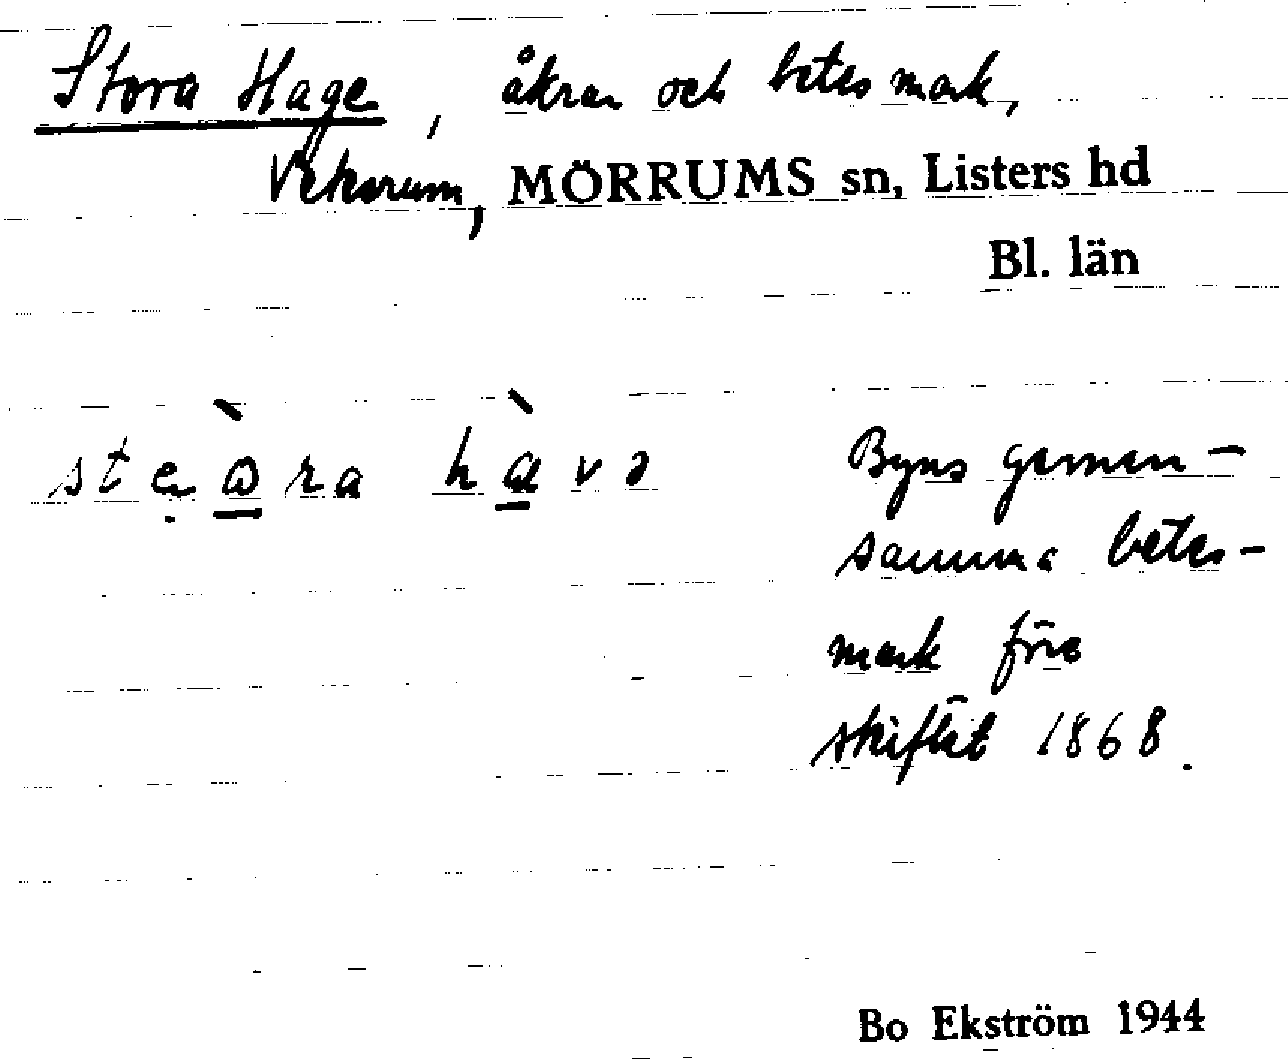 Stora Hage, åkrar och betesmark,
Vekorum, MÖRRUMS sn, Listers hd
Bl. län
Byns gemen-
samma betes-
mark före
skiftet 1868.
Bo Ekström 1944